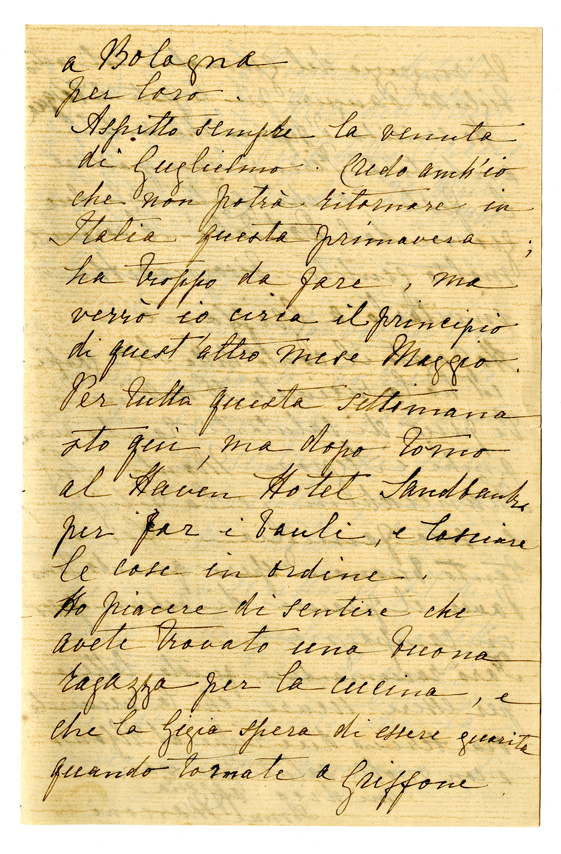 a Bologna
per loro.
Aspetto sempre la venuta
di Guglielmo. Credo anch'io
che non potrà ritornare in
Italia questa primavera;
ha troppo da fare, ma
verrò io circa il principio
di quest'altro mese Maggio.
Per tutta questa settimana
sto qui, ma dopo torno
al Haven Hotel Sandbanks
per far i bauli, e lasciare
le cose in ordine.
Ho piacere di sentire che
avete trovato una buona
ragazza per la cucina, e
che la Gigia spera di essere guarita
quando tornate a Griffone.